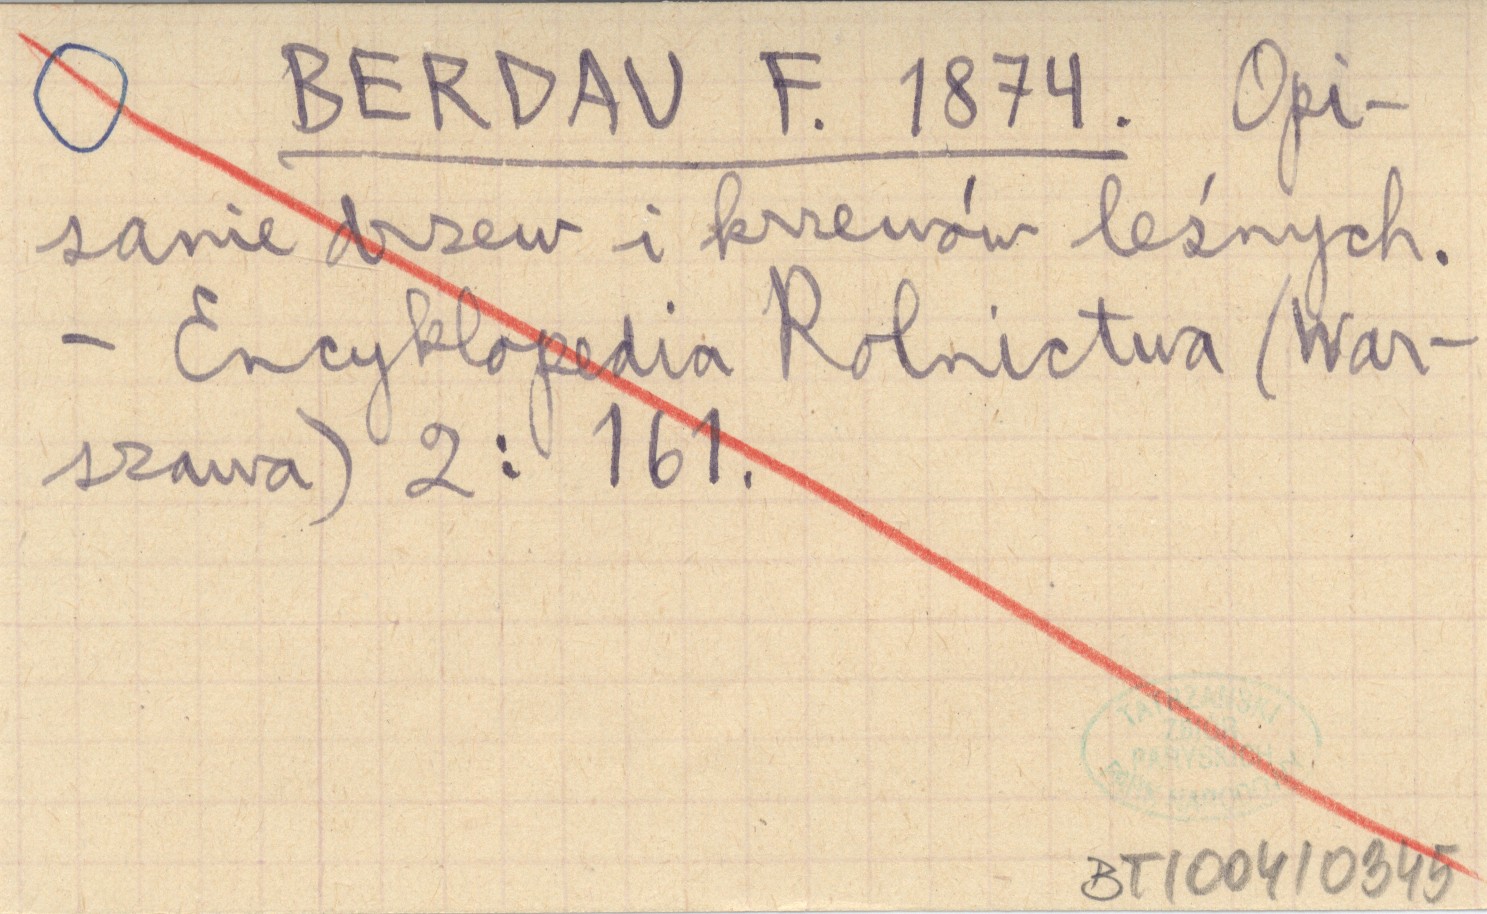 BERDAU F. 1874. Opi-
sanie drzew i krzewów leśnych.
- Encyklopedia Rolnictwa (War-
szawa) 2: 161.
TATRZAŃSKI
PARK NARODOWY
BT/004/0345